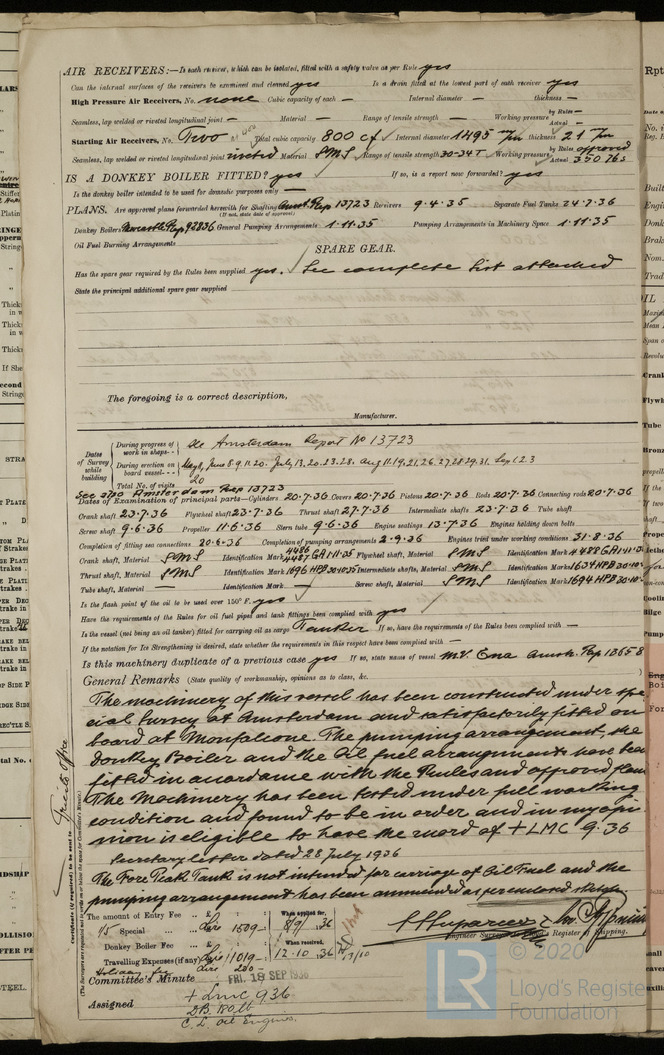 AIR RECEIVERS:—Is each receiver, which can be isolated, fitted with a safety valve as per Rule yes
Can the internal surfaces of the receivers be examined and cleaned yes Is a drain fitted at the lowest part of each receiver yes
High Pressure Air Receivers, No. none Cubic capacity of each — Internal diameter — thickness —
Seamless, lap welded or riveted longitudinal joint — Material — Range of tensile strength — Working pressure by Rules — Actual —
Starting Air Receivers, No. Two Total cubic capacity 800 cf Internal diameter 1495 m/m thickness 21 m/m
Seamless, lap welded or riveted longitudinal joint riveted Material SMS Range of tensile strength 30-34 T Working pressure by Rules approved Actual 350
IS A DONKEY BOILER FITTED? yes If so, is a report now forwarded? yes
Is the donkey boiler intended to be used for domestic purposes only —
PLANS. Are approved plans forwarded herewith for Shafting Amst. Rep 13723 Receivers 9.4.35 Separate Fuel Tanks 24.7.36
(If not, state date of approval)
Donkey Boilers Newcastle Rep 92836 General Pumping Arrangements 1.11.35 Pumping Arrangements in Machinery Space 1.11.35
Oil Fuel Burning Arrangements
SPARE GEAR.
Has the spare gear required by the Rules been supplied yes. See complete list attached
State the principal additional spare gear supplied
The foregoing is a correct description,
Manufacturer.
Dates of Survey while building
During progress of work in shops-- See Amsterdam Report No 13723
During erection on board vessel--- May 8, June 5.9.11.20. July 13.20.23.28. Aug 11.19.21.26.27.28.29.31. Sep 1.2.3
Total No. of visits 20
See also Amsterdam Rep 13723
Dates of Examination of principal parts—Cylinders 20.7.36 Covers 20.7.36 Pistons 20.7.36 Rods 20.7.36 Connecting rods 20.7.36
Crank shaft 23.7.36 Flywheel shaft 23.7.36 Thrust shaft 27.7.36 Intermediate shafts 23.7.36 Tube shaft —
Screw shaft 9.6.36 Propeller 11.6.36 Stern tube 9.6.36 Engine seatings 13.7.36 Engines holding down bolts
Completion of fitting sea connections 20.6.36 Completion of pumping arrangements 2.9.36 Engines tried under working conditions 31.8.36
Crank shaft, Material SMS Identification Mark 4486 4487 GA 1.11.35 Flywheel shaft, Material SMS Identification Mark 4488 GA 1.11.3
Thrust shaft, Material SMS Identification Mark 1696 HPB 30.10.35 Intermediate shafts, Material SMS Identification Mark 1634 HPB 30.10
Tube shaft, Material — Identification Mark — Screw shaft, Material SMS Identification Mark 1694 HPB 30.10
Is the flash point of the oil to be used over 150° F. yes
Have the requirements of the Rules for oil fuel pipes and tank fittings been complied with yes
Is the vessel (not being an oil tanker) fitted for carrying oil as cargo Tanker If so, have the requirements of the Rules been complied with —
If the notation for Ice Strengthening is desired, state whether the requirements in this respect have been complied with —
Is this machinery duplicate of a previous case yes If so, state name of vessel M.V. Ena Amst. Rep 13658
General Remarks (State quality of workmanship, opinions as to class, &c.
The machinery of this vessel has been constructed under spe
cial Survey at Amsterdam and satisfactorily fitted on
board at Monfalcone. The pumping arrangement, the
donkey Boiler and the Oil fuel arrangements have been
fitted in accordance with the Rules and approved plans
The Machinery has been tested under full working
condition and found to be in order and in my opi
nion is eligible to have the record of + LMC 9.36
Secretary letter dated 28 July 1936
The Fore Peak Tank is not intended for carriage of Oil Fuel and the
pumping arrangement has been ammended as per
The amount of Entry Fee .. £ : : When applied for,
4/5 Special ... ... Lire 1509.— 8/9/ 1936
Donkey Boiler Fee ... £ : : When received,
Travelling Expenses (if any) Lire 1019.— 12.10.1936
Lire 200.—
Engineer Surveyor to Lloyd's Register of Shipping.
Committee's Minute FRI. 18 SEP 1936
Assigned + LMC 9.36
DB 180 lb
C.L. Oil Engines.
Certificate (if required) to be sent to Trieste Office
(The Surveyors are requested not to write on or below the space for Committee's Minute.)
LR
© 2020
Lloyd's Register
Foundation